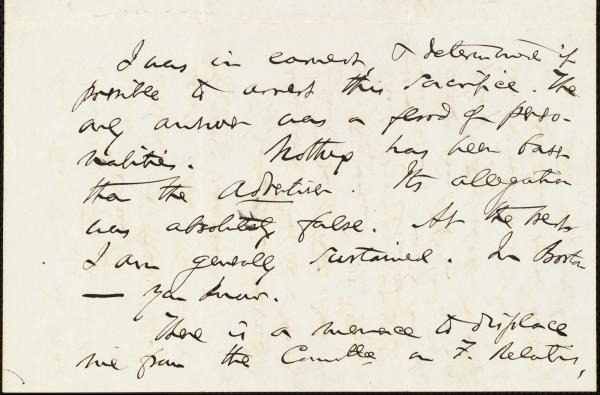 I was in earnest, & determined if
possible to arrest this sacrifice. The
only answer was a flood of perso-
nalities. Nothing has been baser
than the Advertiser. Its allegation
was absolutely false. At the West
I am generally sustained. In Boston
— you know.
There is a menace to displace
me from the Committee on F. Relations,